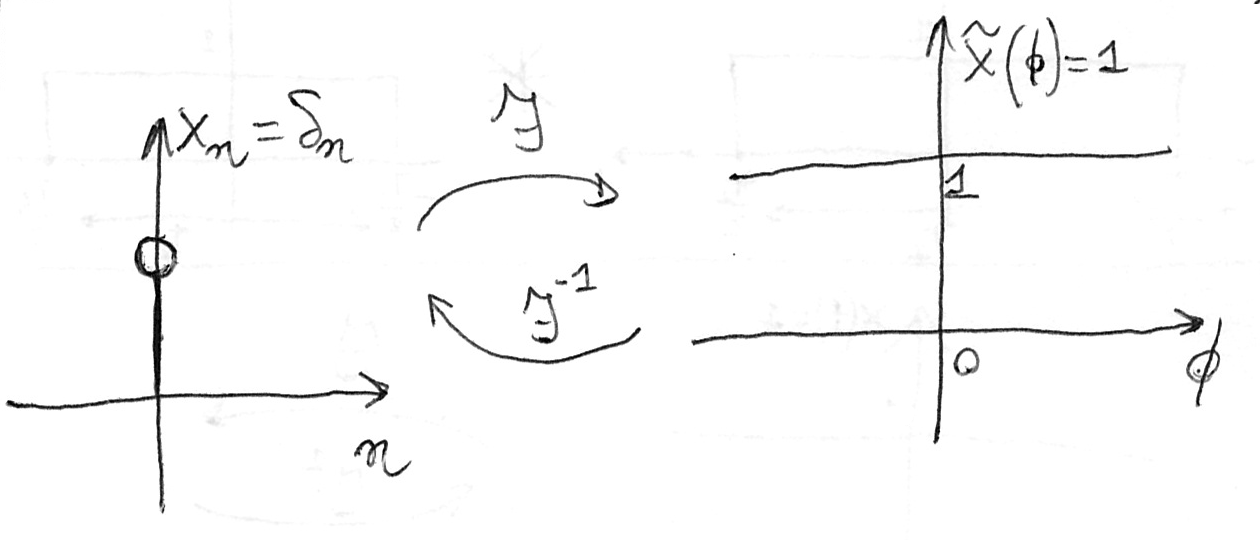 xₙ = δₙ
n
ℱ
ℱ⁻¹
x̃(ϕ) = 1
1
0
ϕ